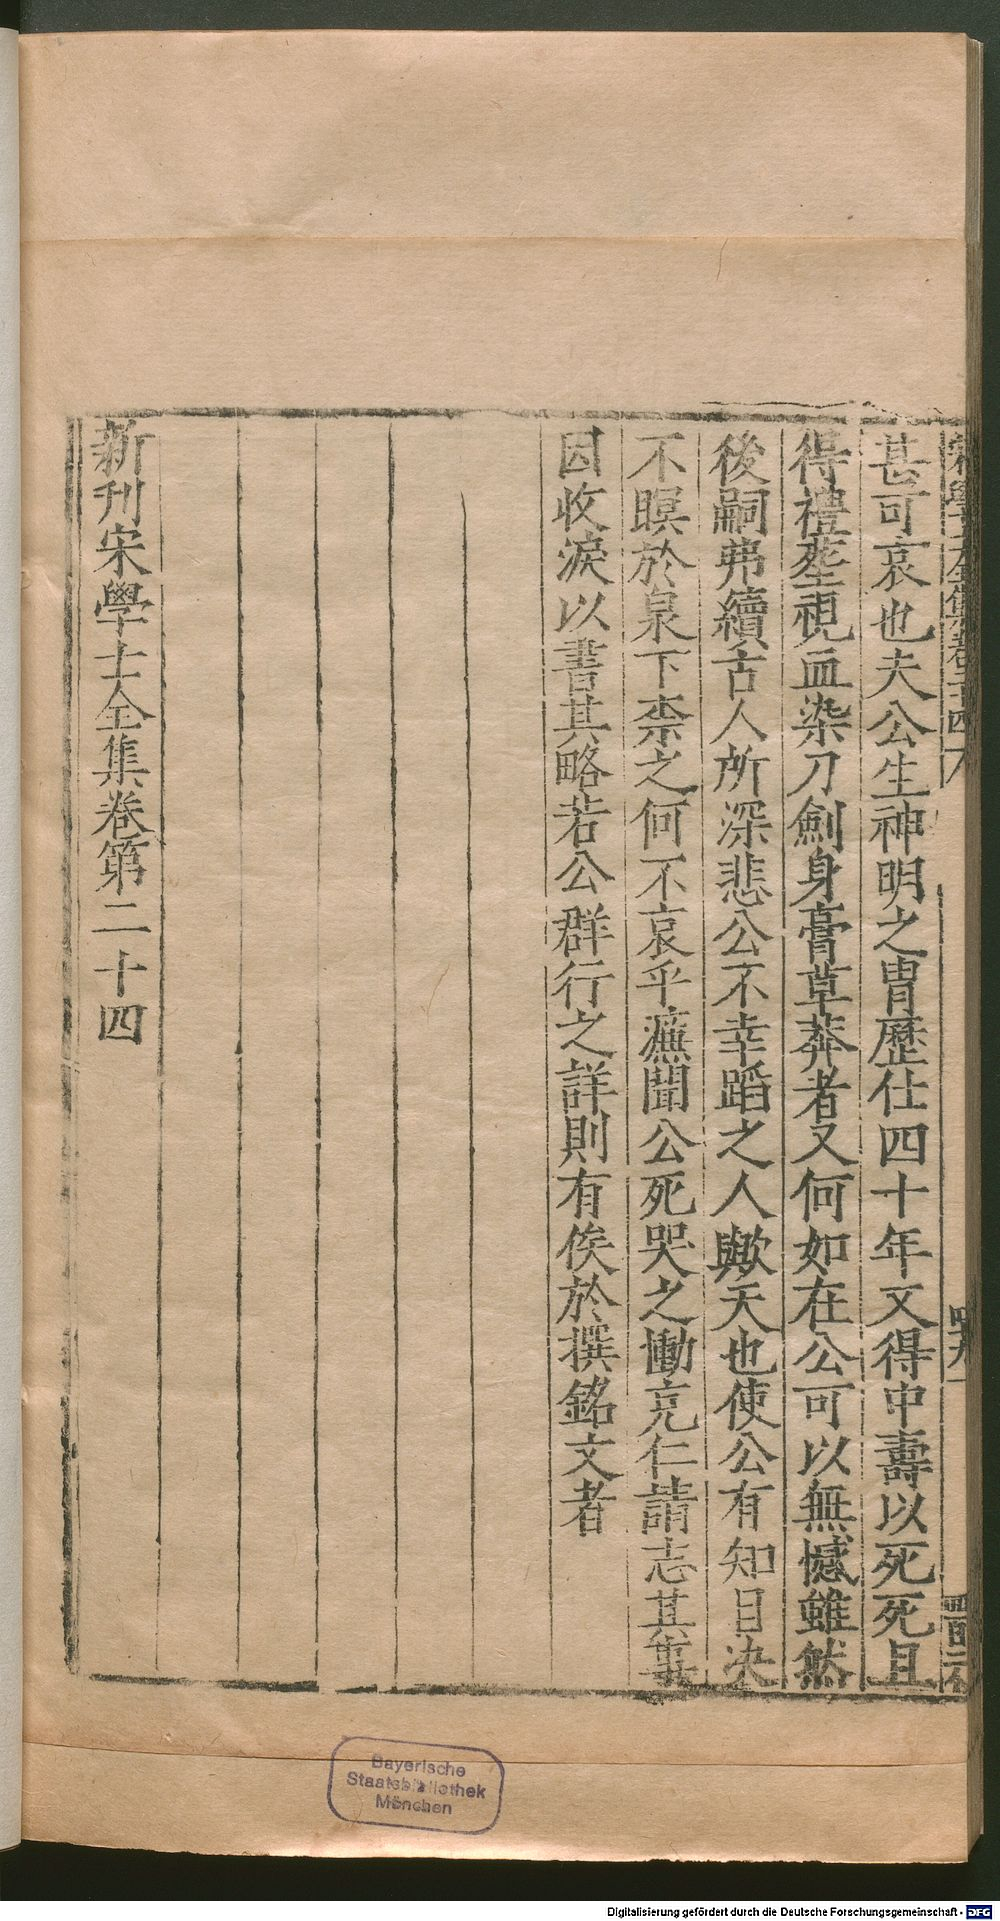 宋學士全集卷二十四
甚可哀也夫公生神明之胄歷仕四十年又得中壽以死死且
得禮塟視血染刀劍身膏草莽者又何如在公可以無憾雖然
後嗣弗續古人所深悲公不幸蹈之人歟天也使公有知目決
不瞑於泉下柰之何不哀乎濂聞公死哭之慟克仁請志其事
因收淚以書其略若公群行之詳則有俟於撰銘文者
新刊宋學士全集卷第二十四
Bayerische
Staatsbibliothek
München
Digitalisierung gefördert durch die Deutsche Forschungsgemeinschaft - DFG